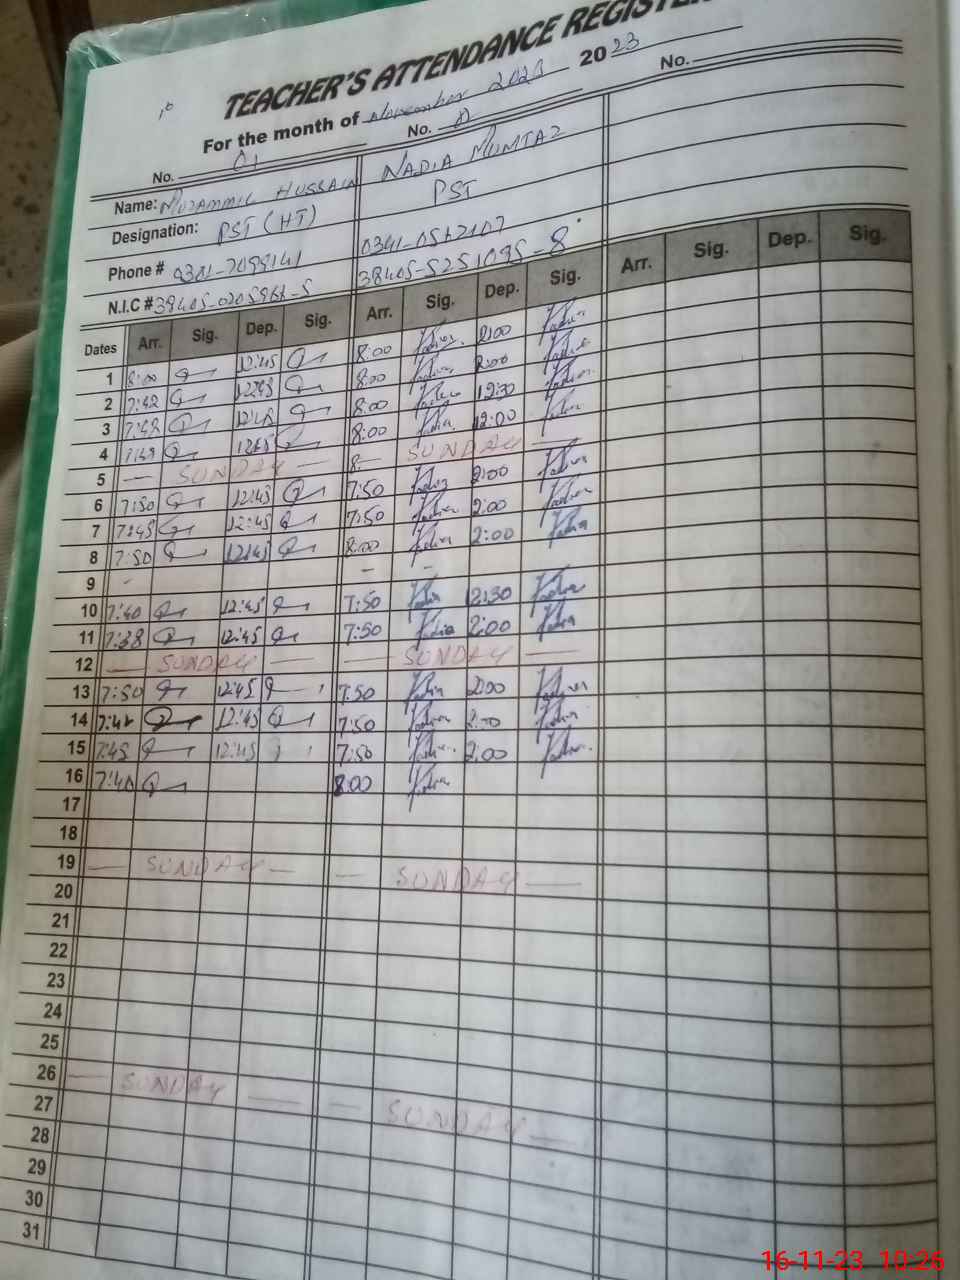 TEACHER'S ATTENDANCE REGISTER
For the month of November 2023 2023
No. 01 No. No.
Name: Muzammil Hussain NADIA MUMTAZ
Designation: PST (HT) PST
Phone # 0341-0567107
N.I.C # 38405-5251095-8
Dates Arr. Sig. Dep. Sig. Arr. Sig. Dep. Sig. Arr. Sig. Dep. Sig.
1 8:00 12:45 8:00 2:00
2 7:42 12:45 8:00 2:00
3 7:48 12:45 8:00 12:30
4 12:45 8:00 12:00
5 — SUNDAY — 8: — SUNDAY —
6 7:50 12:45 7:50 2:00
7 7:45 12:45 7:50 2:00
8 7:50 12:45 8:00 2:00
9 - - -
10 7:40 12:45 7:50 12:30
11 7:38 12:45 7:50 2:00
12 — SUNDAY — — SUNDAY —
13 7:50 12:45 7:50 2:00
14 12:45 7:50
15 7:45 12:45 7:50 2:00
16 7:40 8:00
17
18
19 — SUNDAY — — SUNDAY —
20
21
22
23
24
25
26 — SUNDAY — — SUNDAY —
27
28
29
30
31
16-11-23 10:26